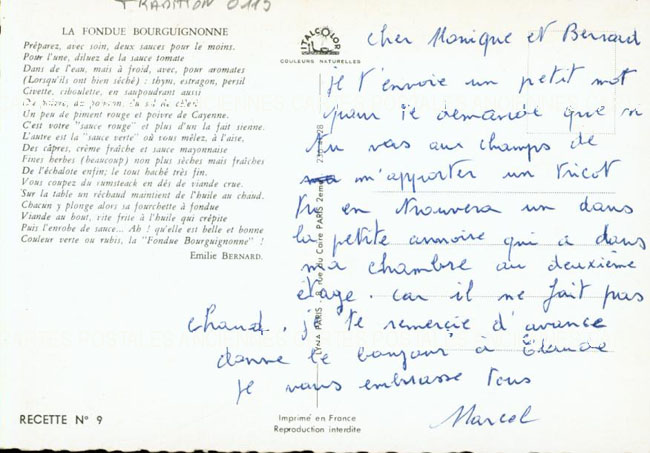 TRADITION 0119
LA FONDUE BOURGUIGNONNE
Préparez, avec soin, deux sauces pour le moins.
Pour l'une, diluez de la sauce tomate
Dans de l'eau, mais à froid, avec, pour aromates
(Lorsqu'ils ont bien séché) : thym, estragon, persil
Civette, ciboulette, en saupoudrant aussi
De poivre, au poivron, du sel de céleri
Un peu de piment rouge et poivre de Cayenne.
C'est votre "sauce rouge" et plus d'un la fait sienne.
L'autre est la "sauce verte" où vous mêlez, à l'aise,
Des câpres, crème fraîche et sauce mayonnaise
Fines herbes (beaucoup) non plus sèches mais fraîches
De l'échalote enfin; le tout haché très fin.
Vous coupez du rumsteack en dés de viande crue.
Sur la table un réchaud maintient de l'huile au chaud.
Chacun y plonge alors sa fourchette à fondue
Viande au bout, vite frite à l'huile qui crépite
Puis l'enrobe de sauce... Ah ! qu'elle est belle et bonne
Couleur verte ou rubis, la "Fondue Bourguignonne" !
Emilie BERNARD.
RECETTE N° 9
ITALCOLOR
COULEURS NATURELLES
LYNA PARIS - 8, rue du Caire PARIS 2eme
Imprimé en France
Reproduction interdite
cher Monique et Bernard
Je t'envoie un petit mot
pour te demande que si
tu vas aux champs de
m'apporter un tricot
tu en trouvera un dans
la petite armoire qui a dans
ma chambre au deuxième
étage. car il ne fait pas
chaud. je te remercie d'avance
donne le bonjour à
Je vous embrasse tous
Marcel
CARTES POSTALES ANCIENNES